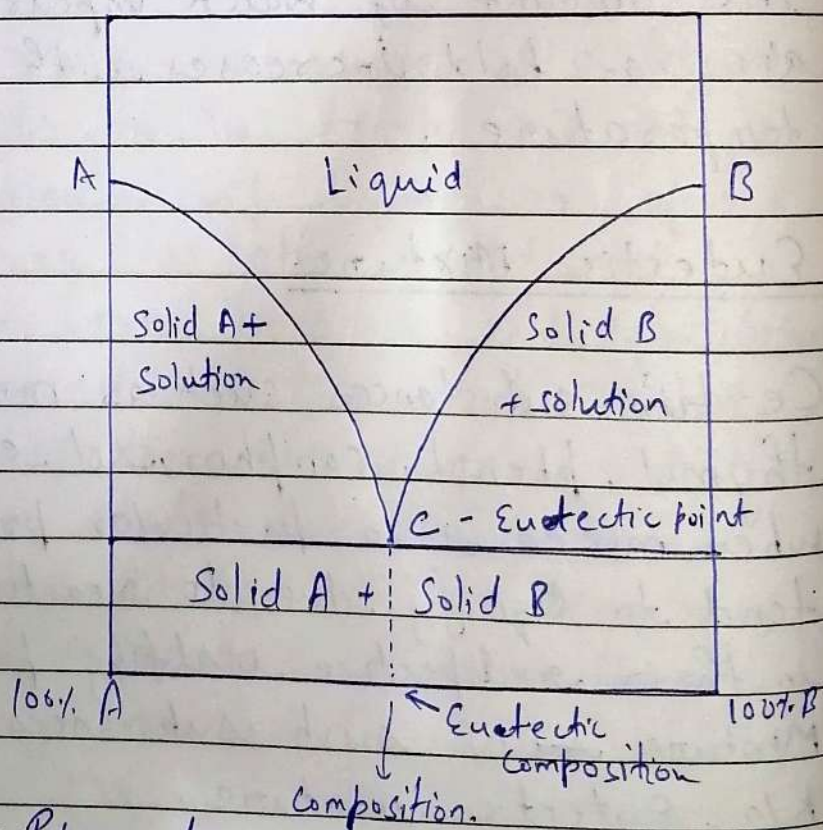 A
Liquid
B
Solid A +
Solution
Solid B
+ solution
C - Eutectic point
Solid A + Solid B
100% A
100% B
Eutectic
Composition
composition.